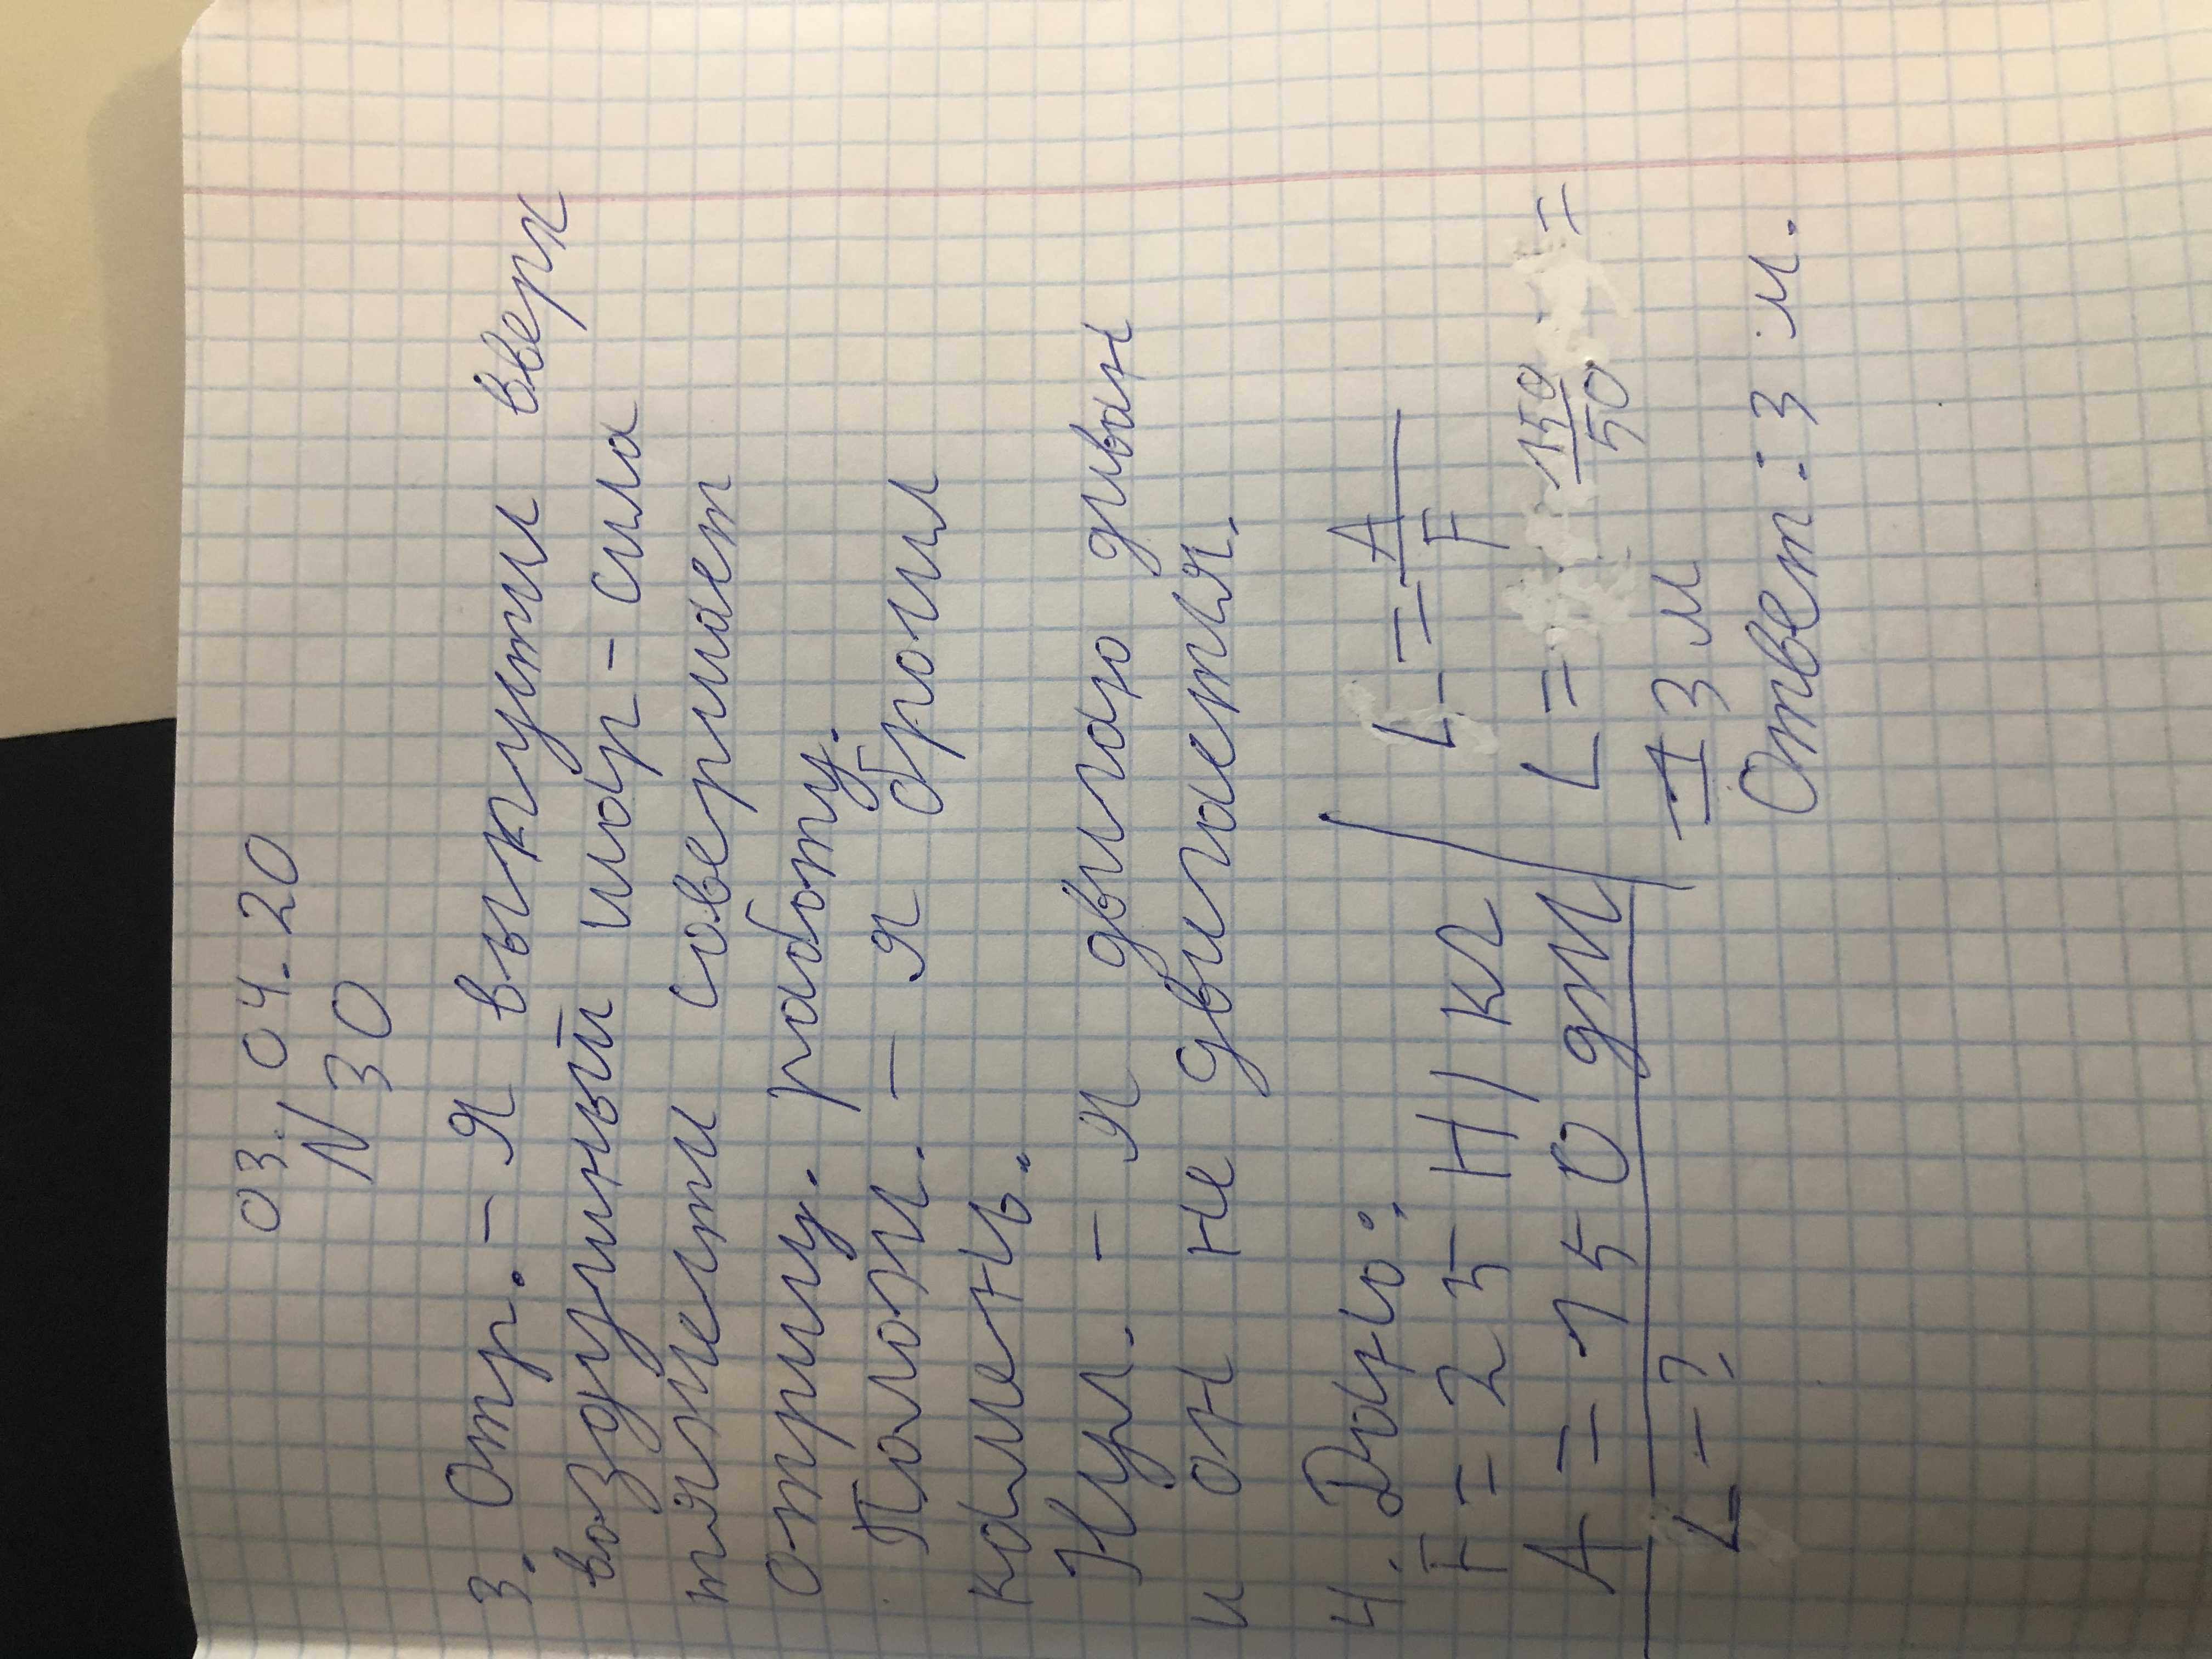 03.04.20
N 30
3. Отр. - Я выкнутил вверх
воздушный шар - сила
тяжести совершает
отриц. работу.
Полож. - я бросил
камень.
Нул. - я двигаю диван
и он не двигается.
4. Дано:
F = 25 Н/кг
A = 150 дж
L - ?
L = A/F
L = 150/50 =
3 м
Ответ: 3 м.